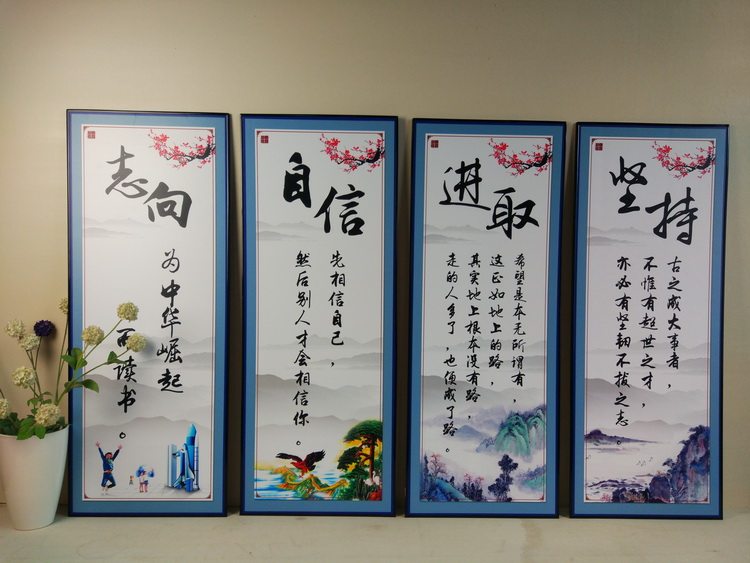 志向
为中华崛起
而读书。
自信
先相信自己，
然后别人才会相信你。
进取
希望是本无所谓有，
这正如地上的路，
其实地上根本没有路，
走的人多了，也便成了路。
坚持
古之成大事者，
不惟有超世之才，
亦必有坚韧不拔之志。